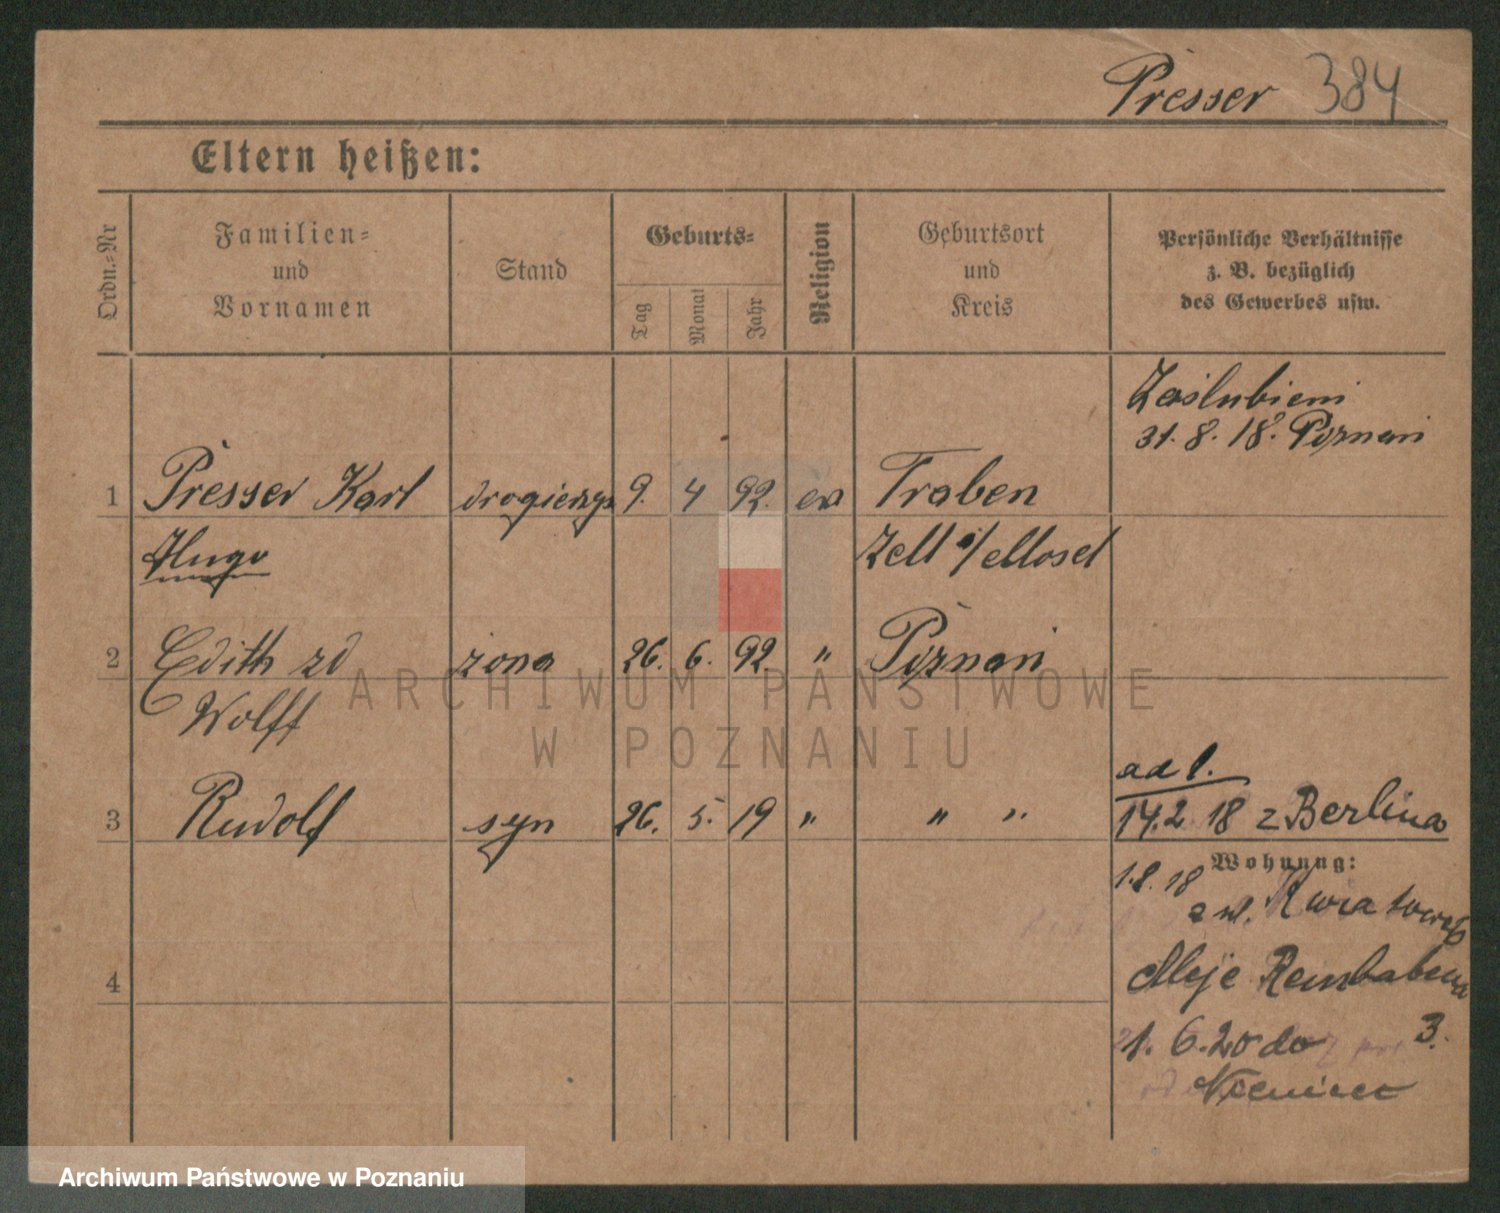 Presser 384
Eltern heißen:
Ordn.-Nr
Familien-
und
Vornamen
Stand
Geburts-
Tag
Monat
Jahr
Religion
Geburtsort
und
Kreis
Persönliche Verhältnisse
z. B. bezüglich
des Gewerbes usw.
Zaślubieni
31. 8. 18. Poznań
1 Presser Karl drogierzysta 9. 4 92. ew Traben
Hugo Zell a/Mosel
2 Edith zd żona 26. 6. 92. " Poznań
Wolff
adl.
3 Rudolf syn 26. 5. 19 " " " 14.2 18 z Berlina
Wohnung:
1.8. 18
z ul. Kwiatowej 6
4 Aleje Reinbabena
3.
1. 6.20 do
Niemiec
ARCHIWUM PAŃSTWOWE
W POZNANIU
Archiwum Państwowe w Poznaniu